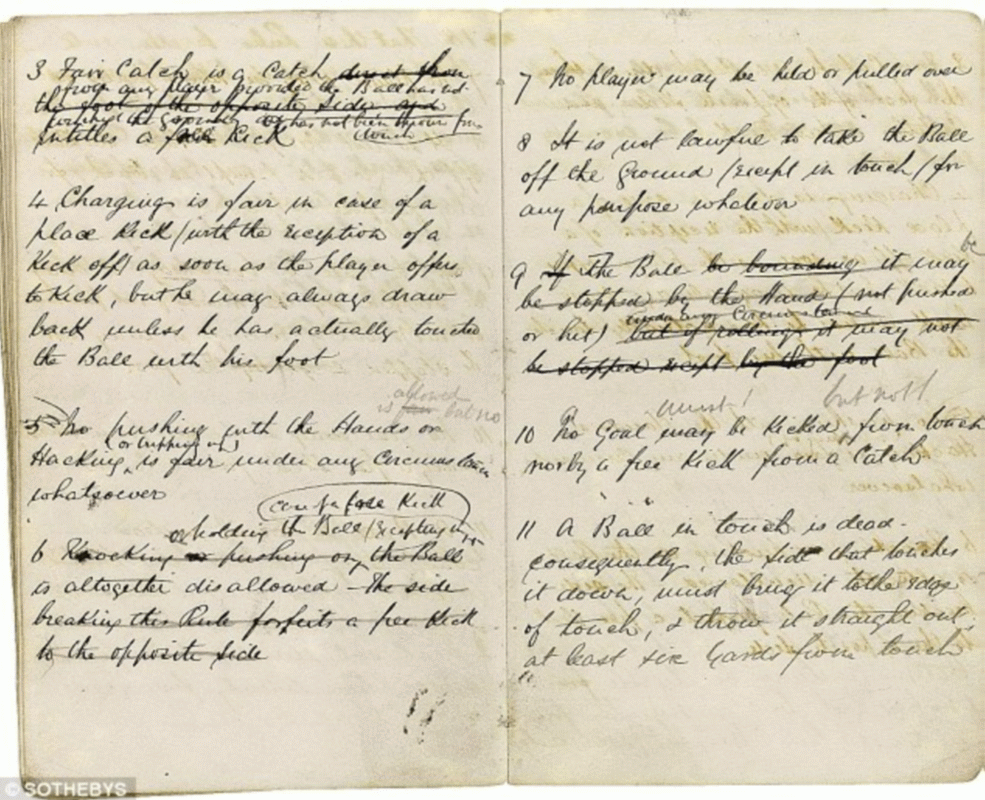 3 Fair Catch is a Catch direct from
from any player provided the Ball has not
the foot of the opposite side and
touched the ground or has not been thrown from
touch
entitles a free Kick
4 Charging is fair in case of a
place Kick (with the exception of a
Kick off) as soon as the player offers
to Kick, but he may always draw
back unless he has actually touched
the Ball with his foot
allowed
is fair but no
5 No pushing with the Hands or
(or tripping up)
Hacking, is fair under any Circumstances
whatsoever
free Kick
holding the Ball (Excepting
6 Knocking or pushing on the Ball
is altogether disallowed - The side
breaking this Rule forfeits a free Kick
to the opposite side
7 No player may be held or pulled over
8 It is not lawful to take the Ball
off the ground (except in touch) for
any purpose whatever
be
9 If The Ball be bounding it may
be stopped by the Hand (not pushed
under any Circumstances
or hit) but if rolling it may not
be stopped except by the foot
must! but not!
10 No Goal may be Kicked, from touch
nor by a free Kick from a Catch
11 A Ball in touch is dead.
consequently, the side that touches
it down, must bring it to the edge
of touch, & throw it straight out,
at least six yards from touch
© SOTHEBYS